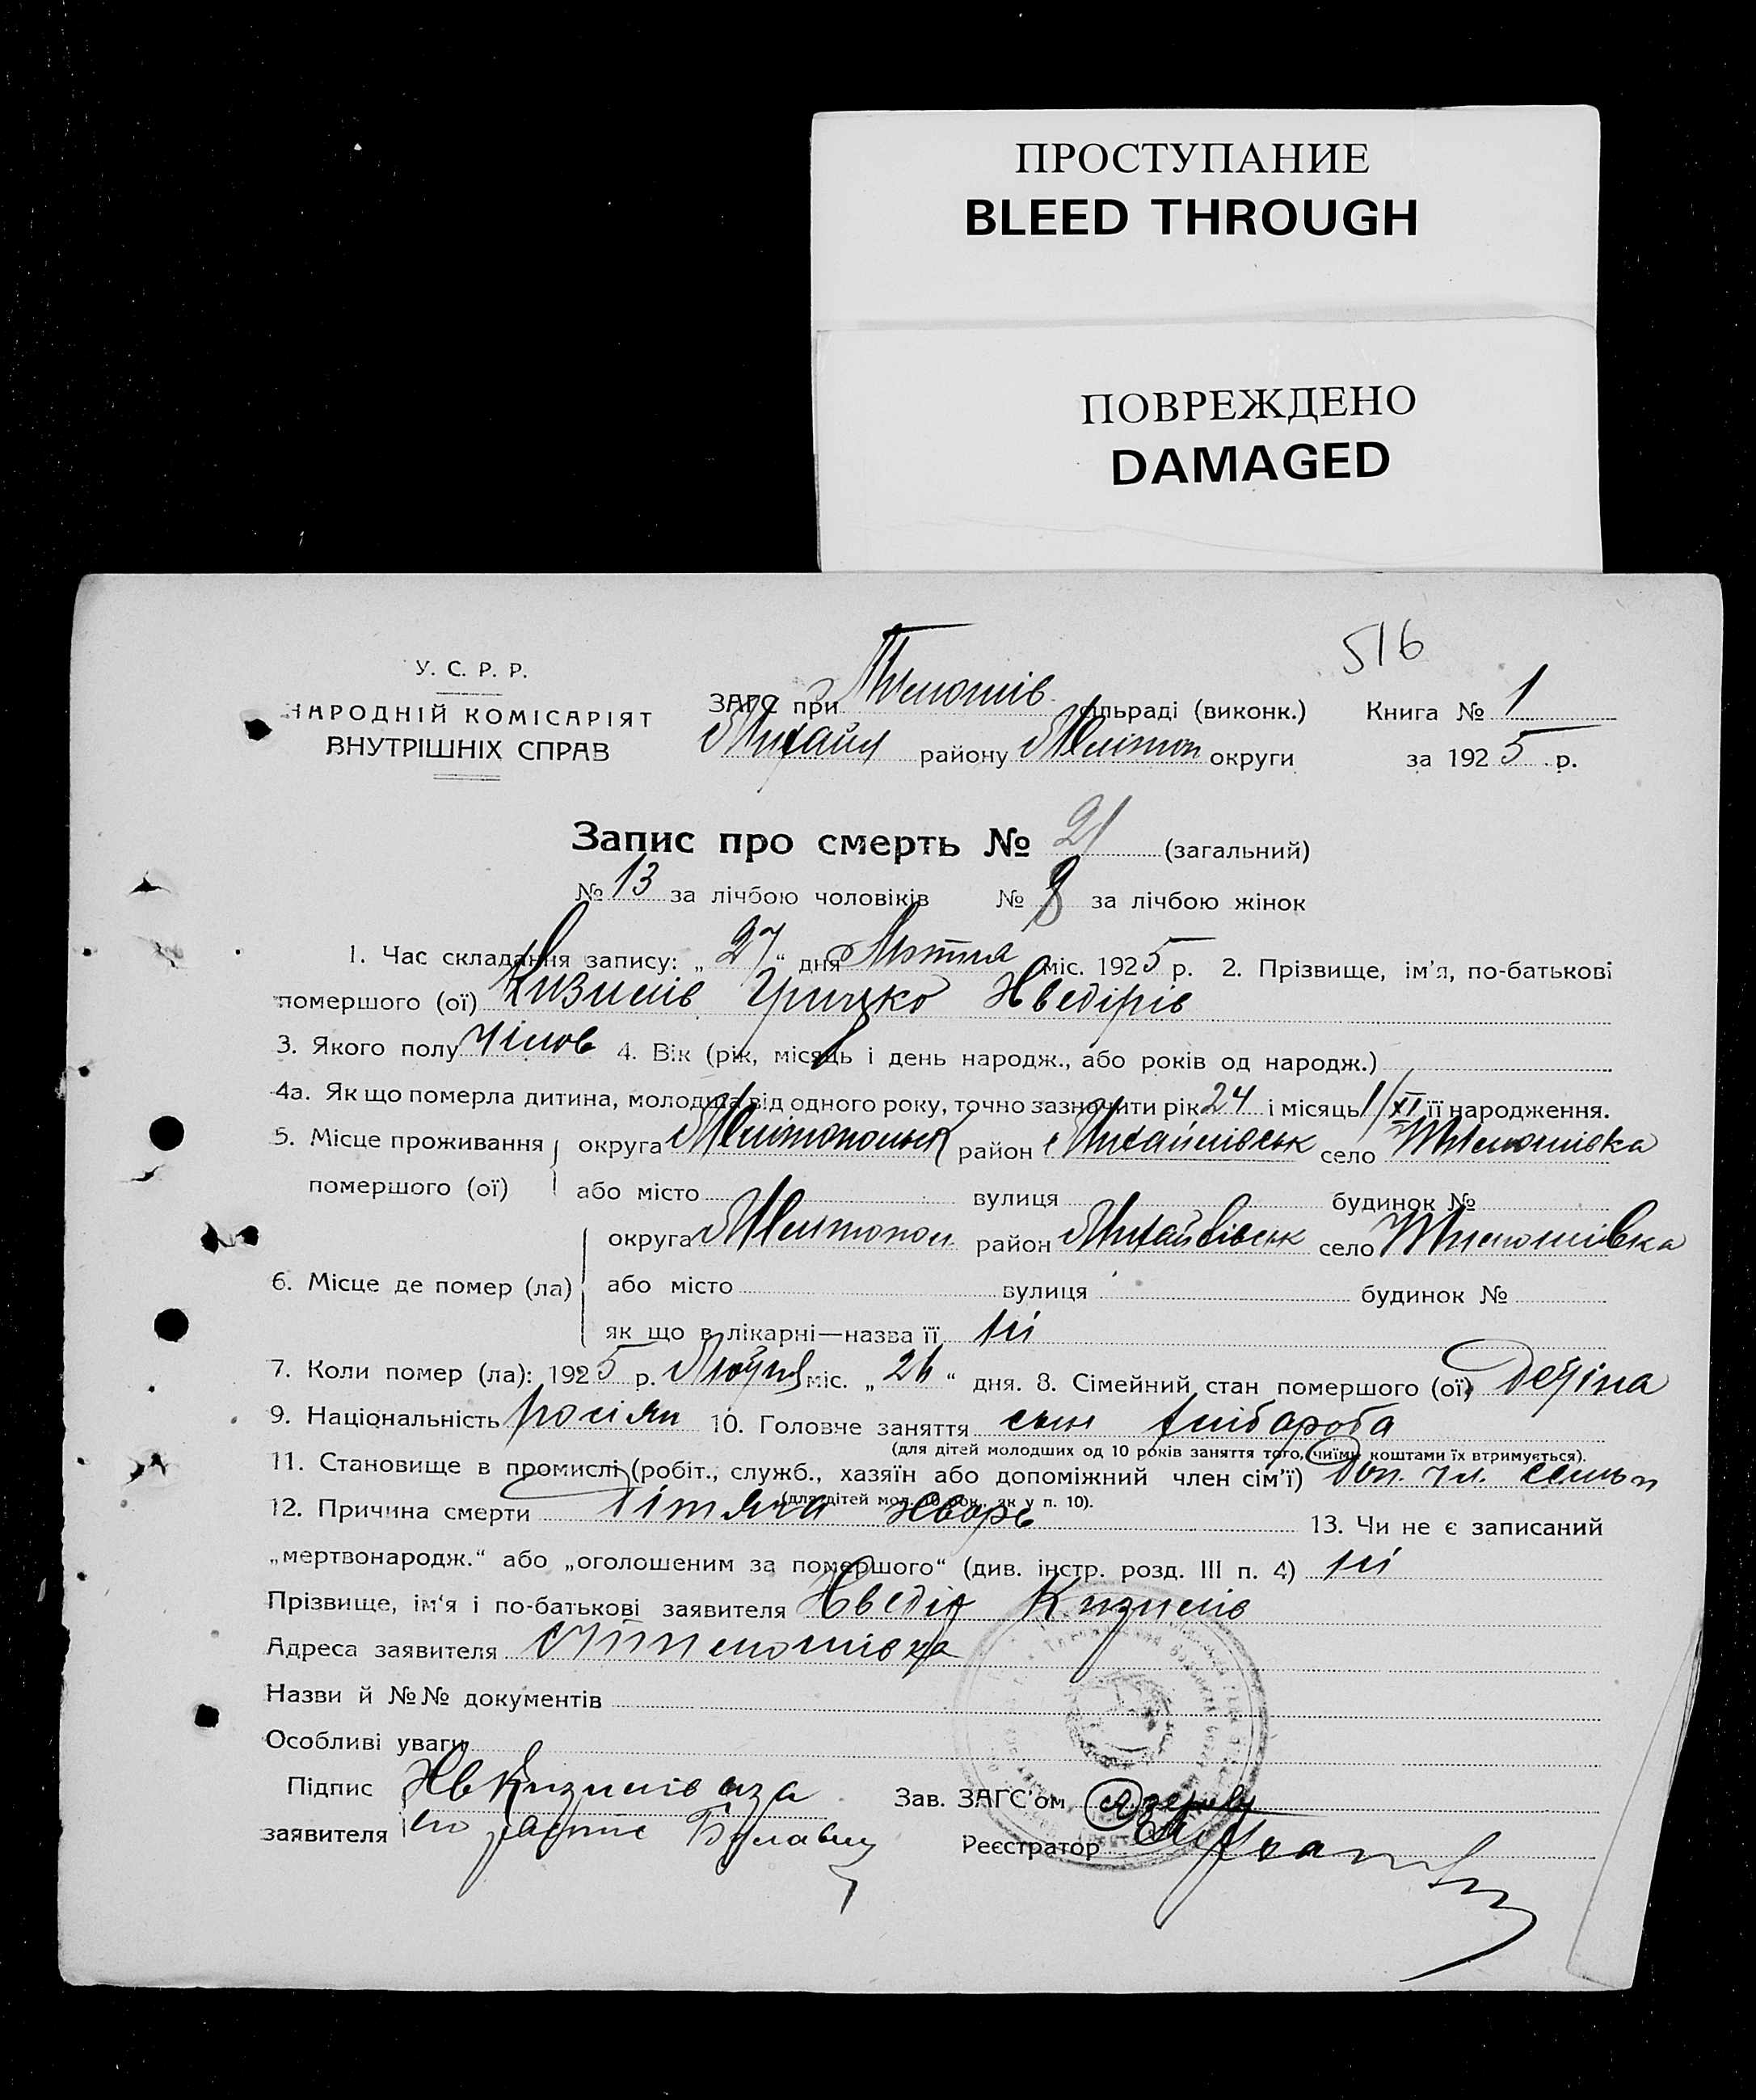 ПРОСТУПАНИЕ
BLEED THROUGH
ПОВРЕЖДЕНО
DAMAGED
516
У. С. Р. Р.
НАРОДНІЙ КОМІСАРІЯТ
ВНУТРІШНІХ СПРАВ
ЗАГС при сільраді (виконк.) Книга № 1
Михайл району Мелітоп округи за 1925 р.
Запис про смерть № 21 (загальний)
№ 13 за лічбою чоловіків № 8 за лічбою жінок
1. Час складання запису: „27“ дня Лютня міс. 1925 р. 2. Прізвище, ім'я, по-батькові
помершого (ої) Кизилів Грицко
3. Якого полу Чолов 4. Вік (рік, місяць і день народж., або років од народж.)
4а. Як що померла дитина, молодша від одного року, точно зазначити рік 24 і місяць 1/XI її народження.
5. Місце проживання округа Мелітопольск район Михайлівськ село
помершого (ої) або місто вулиця будинок №
округа Мелітопол район Михайвівськ село
6. Місце де помер (ла) або місто вулиця будинок №
як що в лікарні—назва її ні
7. Коли помер (ла): 1925 р. міс. „26“ дня. 8. Сімейний стан помершого (ої)
9. Національність росіян 10. Головне заняття син хлібароба
(для дітей молодших од 10 років заняття того, чиїми коштами їх втримується).
11. Становище в промислі (робіт., служб., хазяїн або допоміжний член сім'ї) Доп. чл.
(для дітей мол. 10 рок., як у п. 10).
12. Причина смерти хворь 13. Чи не є записаний
„мертвонародж.“ або „оголошеним за помершого“ (див. інстр. розд. III п. 4) ні
Прізвище, ім'я і по-батькові заявителя Кизилів
Адреса заявителя
Назви й №№ документів
Особливі уваги
Підпис Кизилів аза Зав. ЗАГС'ом
заявителя Реєстратор